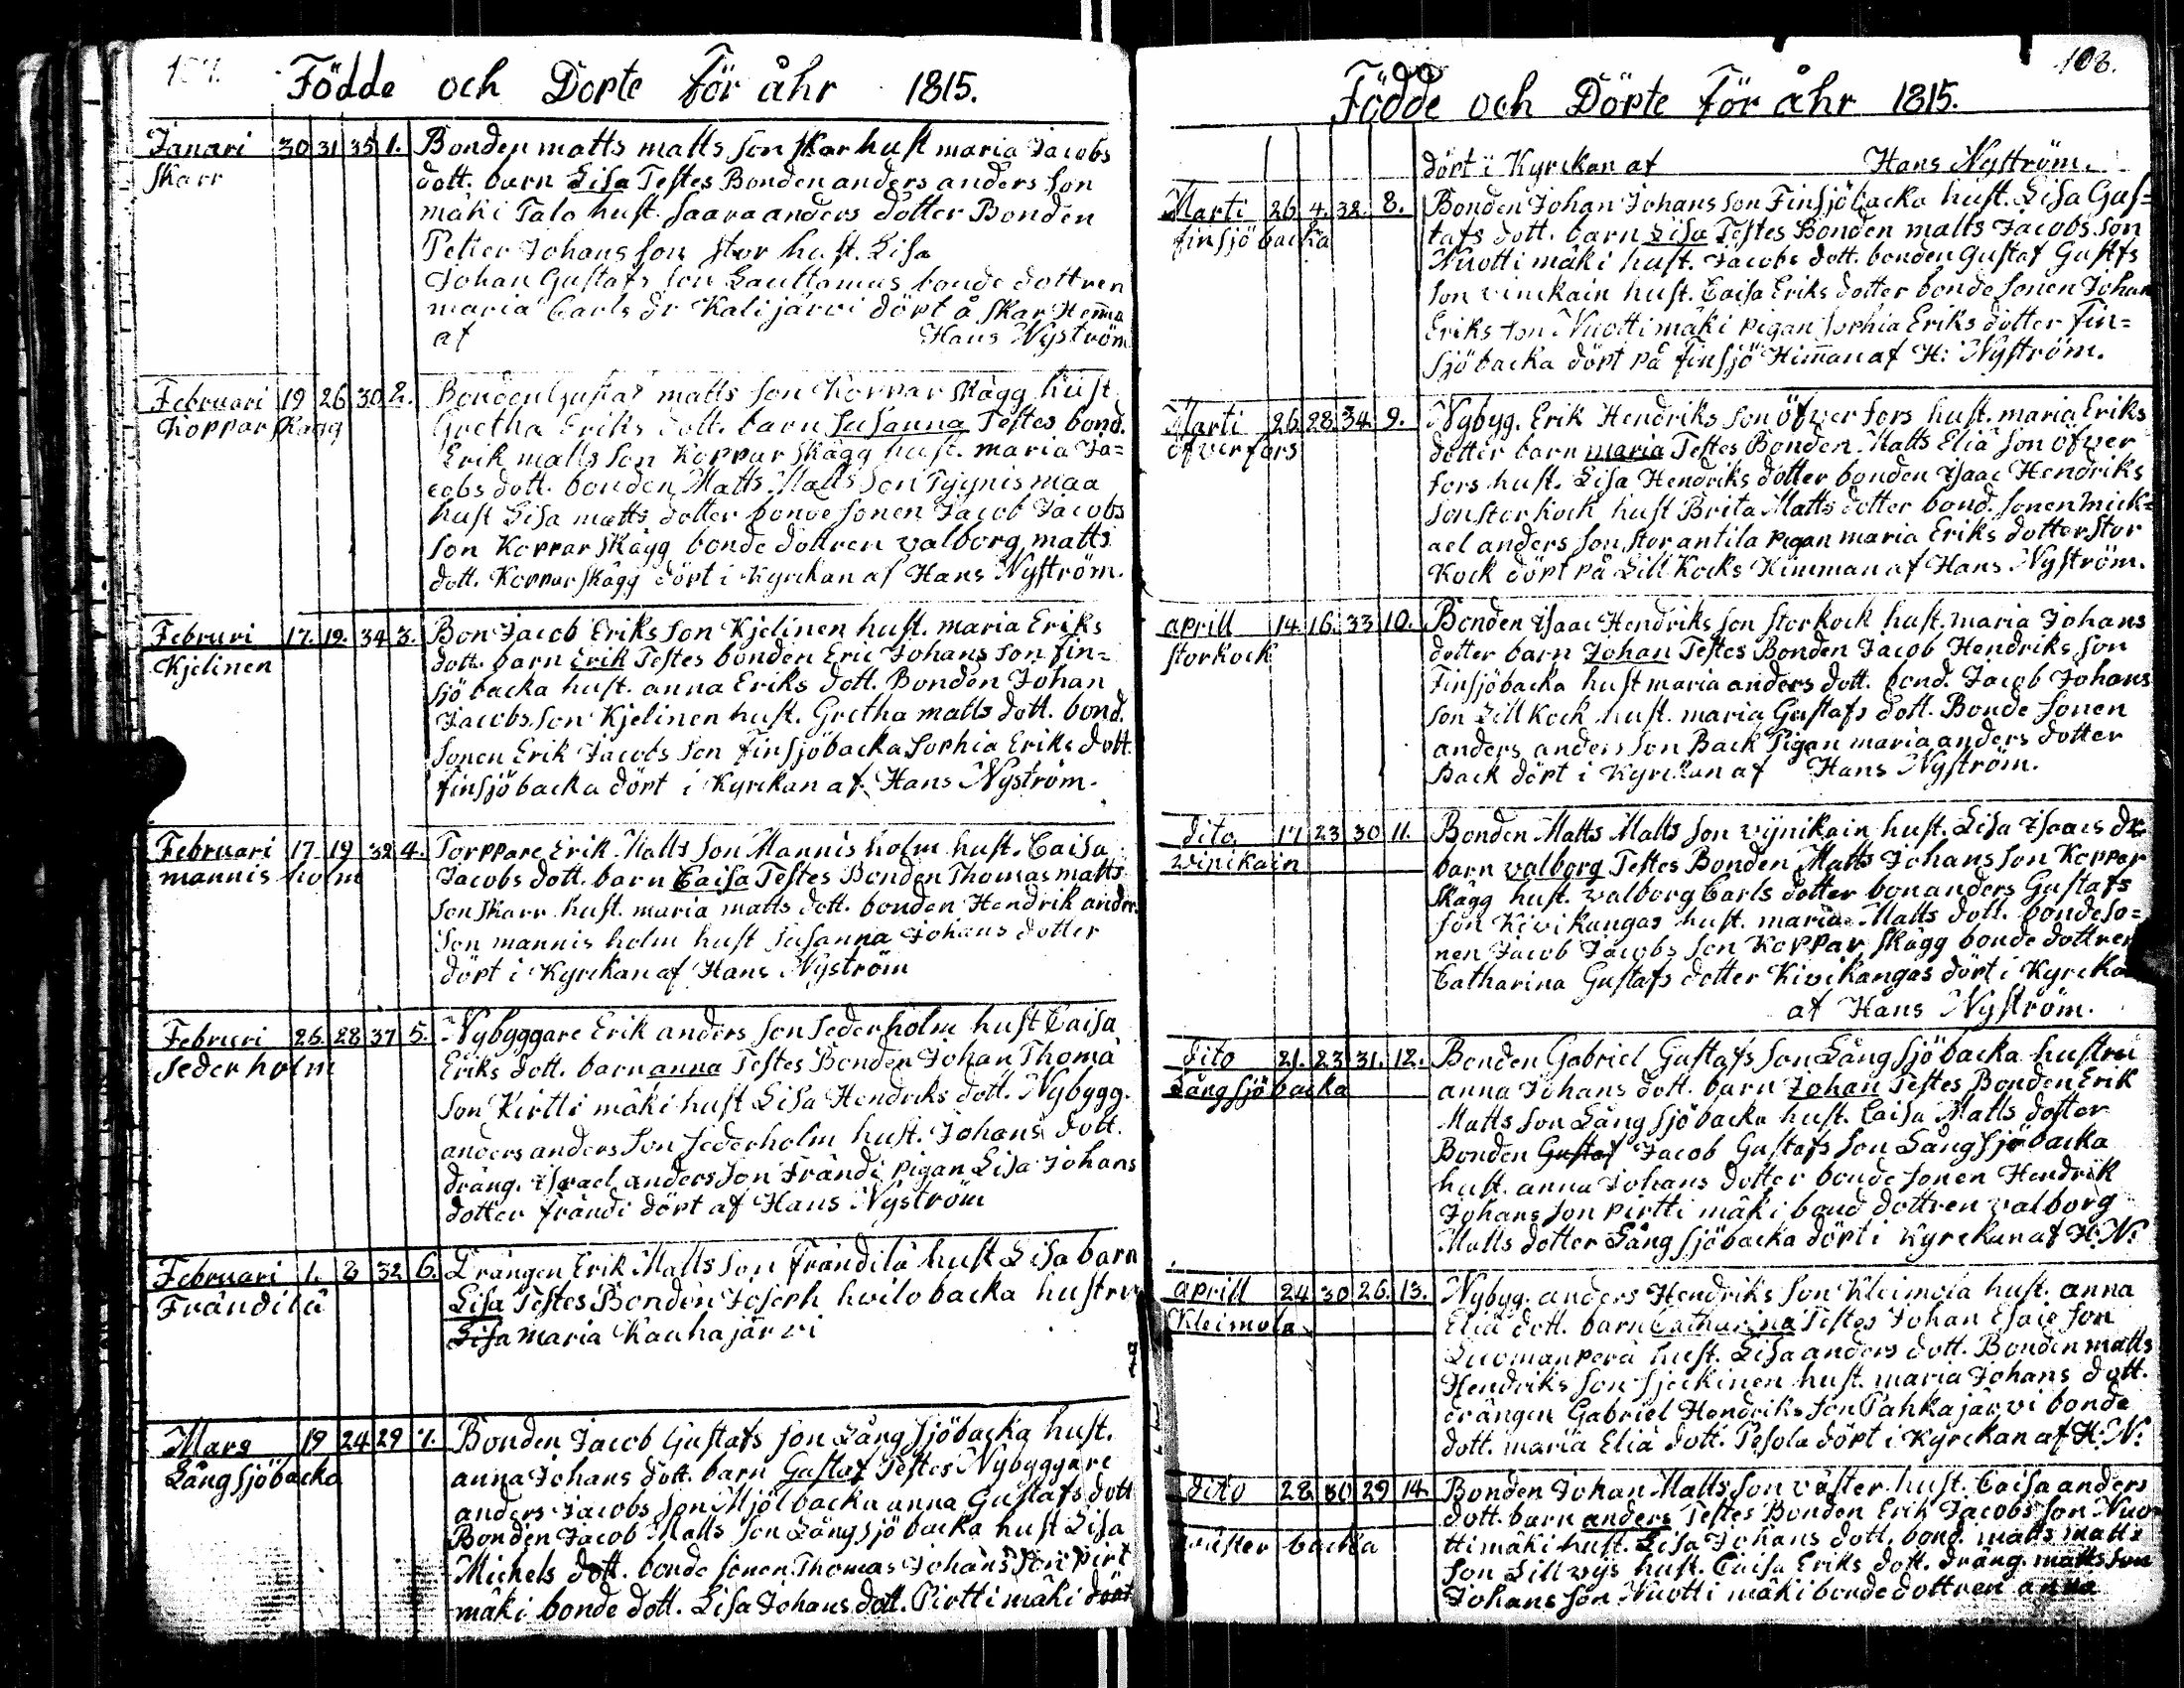 107.
Födde och Dörte för åhr 1815.
Janari 30 31 35 1. Bonden matts matts son skar hust maria Jacobs
skarr dott. barn Lisa Testes Bonden anders anders son
mäki Talo hust. saara anders dotter Bonden
Petter Johans son stor hust. Lisa
Johan Gustafs son Lauttamus bonde dottren
maria Carls dr Kali järvi dört å skar Hemma
af Hans Nyström
Februari 19 26 30 2. Bonden Gustaf matts son Koppar skägg hust
Koppar skägg Gretha Eriks dott. barn Susanna Testes bond.
Erik matts son Koppar skägg hust. maria Ja=
cobs dott. bonden Matts Matts son Pyynis maa
hust Lisa matts dotter bonde sonen Jacob Jacobs
son Koppar skägg bonde dottren valborg matts
dott. Koppar skägg dört i Kyrckan af Hans Nyström.
Februri 17. 19. 34 3. Bon Jacob Eriks son Kjelinen hust. maria Eriks
Kjelinen dott. barn Erik Testes bonden Eric Johans son fin=
sjö backa hust. anna Eriks dott. Bonden Johan
Jacobs son Kjelinen hust. Gretha matts dott. bond.
sonen Erik Jacobs son finsjöbacka Sophia Eriks dott.
finsjöbacka dört i Kyrckan af Hans Nyström.
Februari 17. 19 32 4. Torppare Erik Matts son Mannis holm hust. Caisa
mannis holm Jacobs dott. barn Caisa Testes Bonden Thomas matts
son skarr hust. maria matts dott. bonden Hendrik ander.
son mannis holm hust Susanna Johans dotter
dört i Kyrckan af Hans Nyström
Februri 26. 28 37 5. Nybyggare Erik anders son sederholm hust Caisa
seder holm Eriks dott. barn anna Testes Bonden Johan Thomä
son Kirtti mäki hust Lisa Hendriks dott. Nybygg.
anders anders son sederholm hust. Johans dott.
dräng. israel anders son Frändi pigan Lisa Johans
dotter frändi dört af Hans Nyström
Februari 1. 8 32 6. Drängen Erik Matts son frändilä hust Lisa barn
Frändilä Lisa Testes Bonden Joseph hwilo backa hustru
Lisa maria Kauhajärvi
Mars 19 24 29 7. Bonden Jacob Gustafs son Lång sjöbacka hust.
Lång sjöbacka anna Johans dott. barn Gustaf Testes Nybyggare
anders Jacobs son Mjölbacka anna Gustafs dott
Bonden Jacob Matts son Långsjö backa hust Lisa
Michels dott. bonde sonen Thomas Johans son pirt
mäki bonde dott. Lisa Johans dott. Pirtti mäki dört
108.
Födde och Dörte för åhr 1815.
dört i Kyrckan af Hans Nyström.
Marti 26 4. 32. 8. Bonden Johan Johans son Finsjöbacka hust. Lisa Gus=
finsjö backa tafs dott. barn Lisa Testes Bonden matts Jacobs son
Nuotti mäki hust. Jacobs dott. bonden Gustaf Gustfs
son vinikain hust. Caisa Eriks dotter bonde sonen Johan
Eriks son Nuotti mäki pigan sophia Eriks dotter Fin=
sjöbacka dört på finsjö Himan af H: Nyström.
Marti 26 28 34 9. Nybyg. Erik Hendriks son öfver fors hust. maria Eriks
öfver fors dotter barn maria Testes Bonden Matts Eliä son öfver
fors hust. Lisa Hendriks dotter bonden isaac Hendriks
son stor kock hust Brita Matts dotter bond. sonen mick=
ael anders son stor antila pigan maria Eriks dotter stor
Kock dört på Lill Kocks Himman af Hans Nyström.
aprill 14. 16. 33 10. Bonden isaac Hendriks son storkock hust. maria Johans
storkock dotter barn Johan Testes Bonden Jacob Hendriks son
Finsjöbacka hust maria anders dott. bond. Jacob Johans
son Lill Kock hust. maria Gustafs dott. Bonde sonen
anders anders son Back Pigan maria anders dotter
Back dört i Kyrckan af Hans Nyström.
dito 17 23 30 11. Bonden Matts Matts son vijnikain hust. Lisa isaacs dr
winikain barn valborg Testes Bonden Matts Johans son Koppar
skägg hust. valborg Carls dotter bon anders Gustafs
son Kivikangas hust. maria Matts dott. bonde so=
nen Jacob Jacobs son Koppar skägg bonde dottren
Catharina Gustafs dotter Kivikangas dört i Kyrcka
af Hans Nyström.
dito 21. 23 31. 12. Bonden Gabriel Gustafs son Lång sjöbacka hustru
Lång sjöbacka anna Johans dott. barn Johan Testes Bonden Erik
Matts son Lång sjöbacka hust. Caisa Matts dotter
Bonden Gustaf Jacob Gustafs son Lång sjöbacka
hust. anna Johans dotter bonde sonen Hendrik
Johans son pirtti mäki bond dottren valborg
Matts dotter Lång sjöbacka dört i Kyrckan af H: N:
aprill 24 30 26. 13. Nybyg. anders Hendriks son Kleimola hust. anna
Kleimola Eliä dott. barn Catharina Testes Johan Esaie son
Luomanperä hust. Lisa anders dott. Bonden matts
Hendriks son sjeckinen hust. maria Johans dott.
drängen Gabriel Hendriks son Pahkajärvi bonde
dott. maria Eliä dott. Pesola dört i Kyrckan af H: N:
dito 28 30 29 14. Bonden Johan Matts son väster hust. Caisa anders
wäster backa dott. barn anders Testes Bonden Erik Jacobs son Nuo
tti mäki hust. Lisa Johans dott. bond. matts matts
son Lill wijs hust. Caisa Eriks dott. dräng. matts son
Johans son Nuotti mäki bonde dottren anna